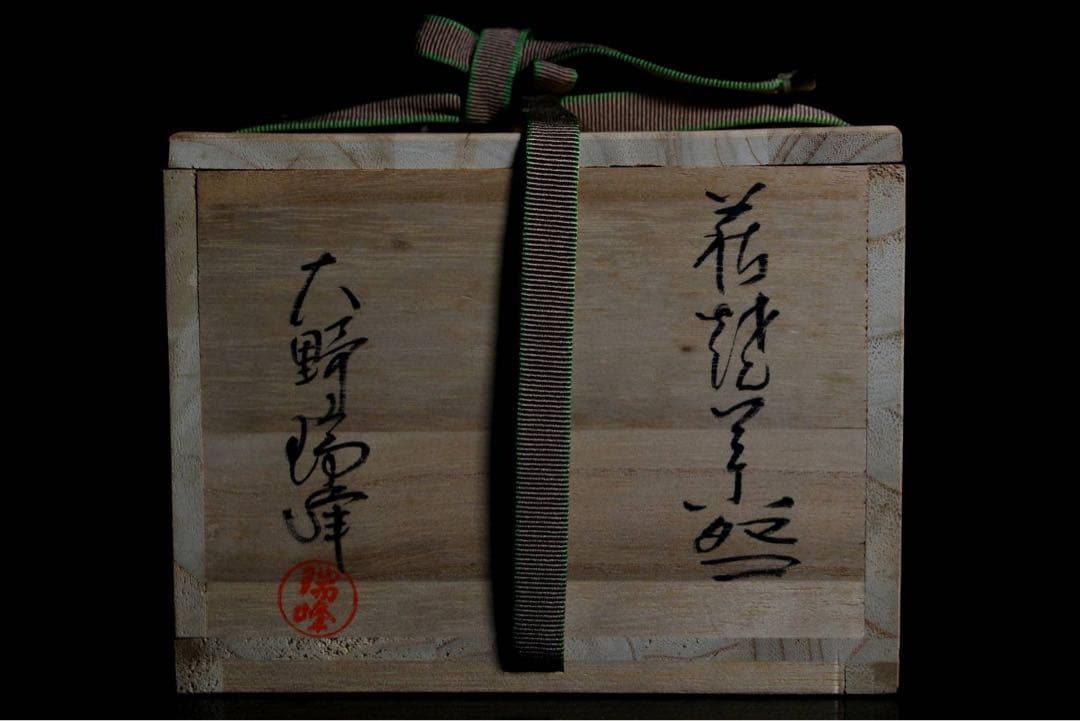 萩焼茶盌
大野瑞峰
瑞峰